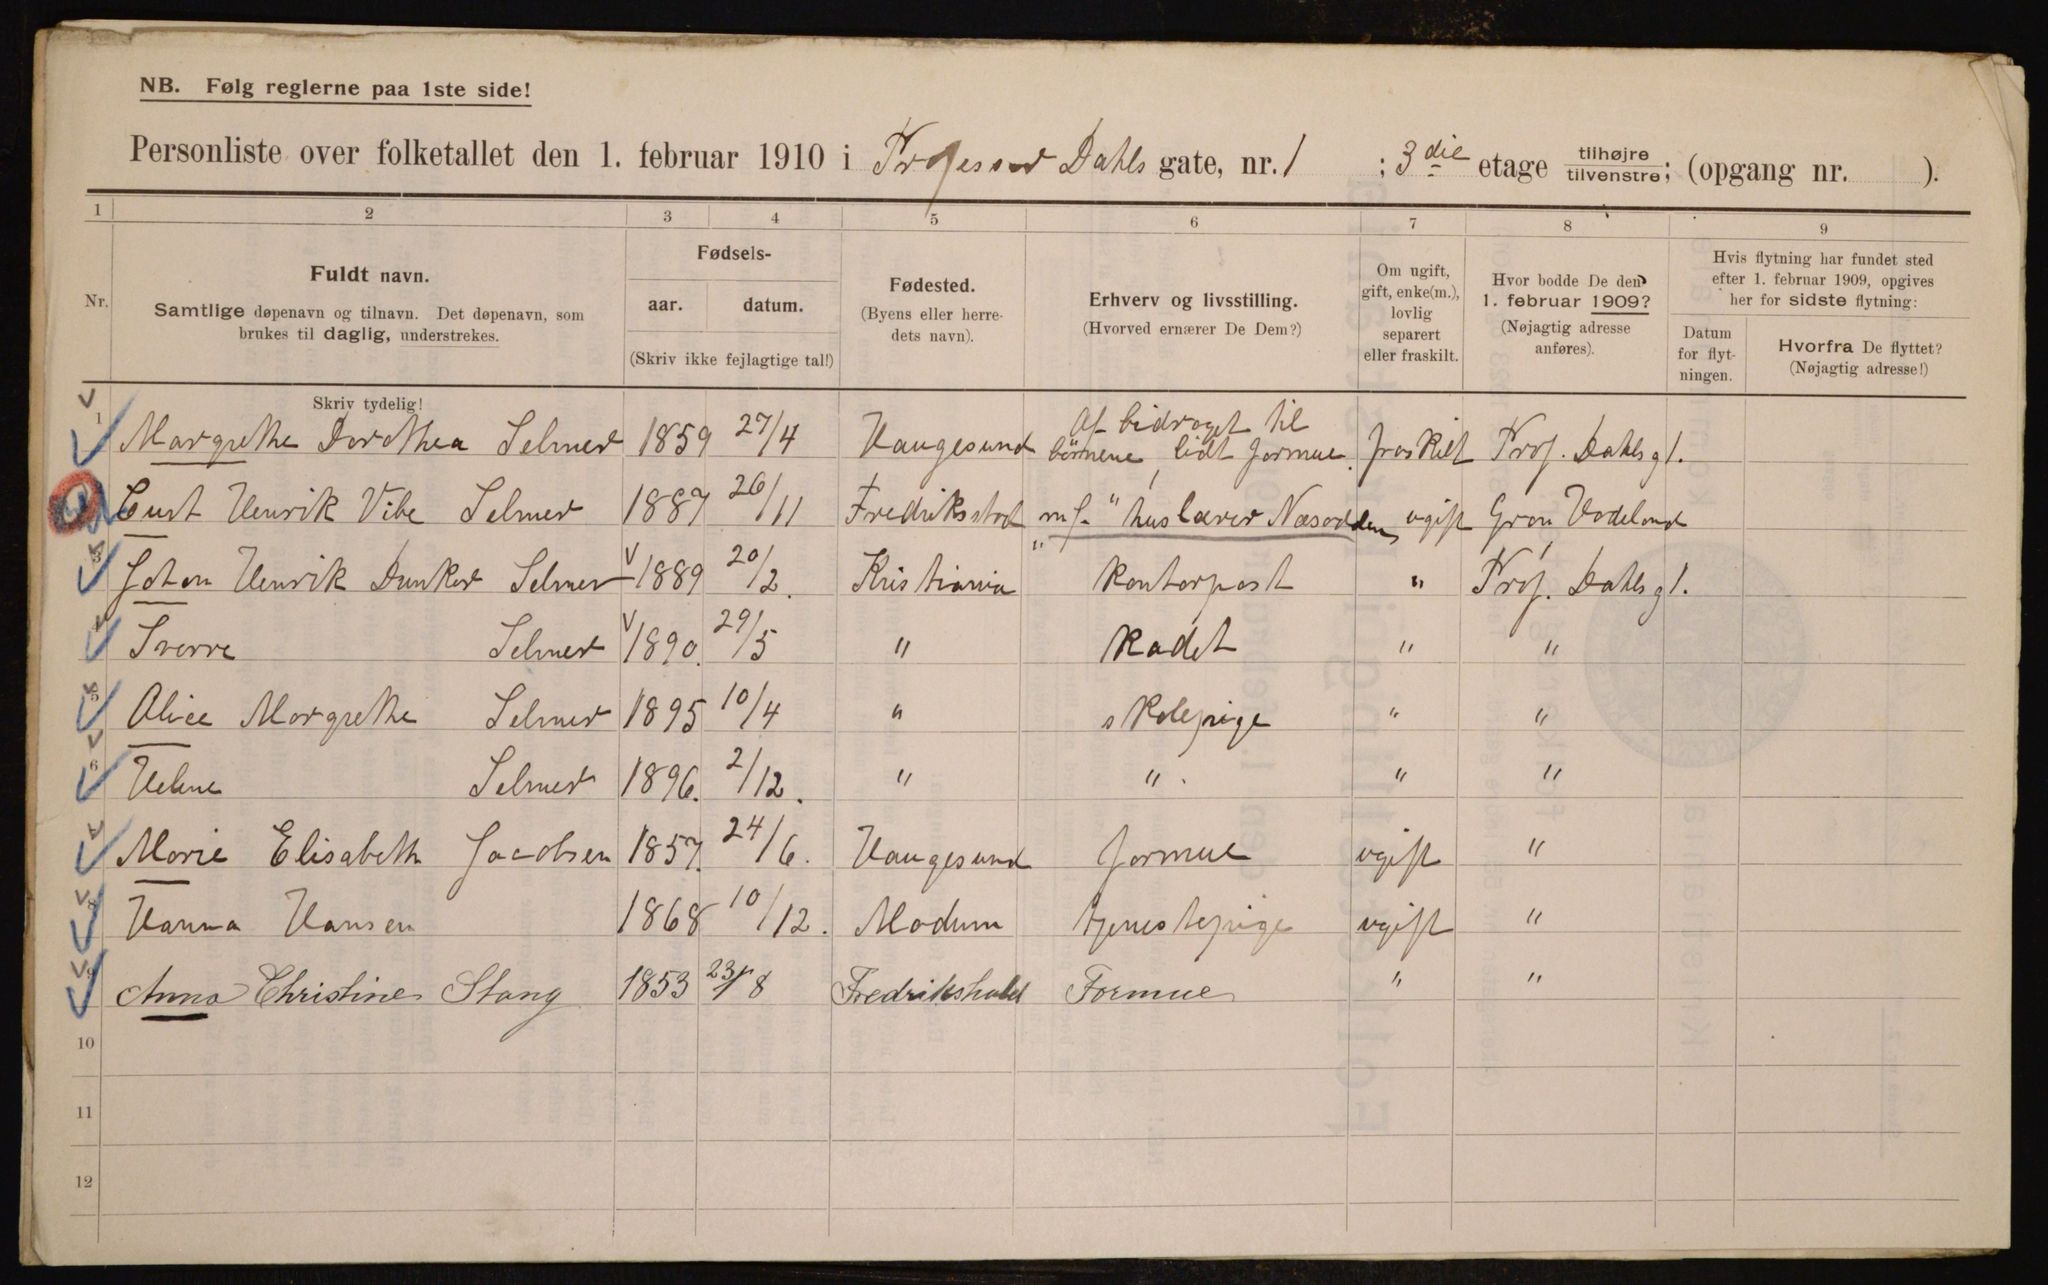 NB. Følg reglerne paa 1ste side!
Personliste over folketallet den 1. februar 1910 i Professor Dahls gate, nr. 1 ; 3die etage tilhøjre tilvenstre; (opgang nr. ).
1 2 3 4 5 6 7 8 9
Nr.
Fuldt navn.
Samtlige døpenavn og tilnavn. Det døpenavn, som
brukes til daglig, understrekes.
Skriv tydelig!
Fødsels-
aar. datum.
(Skriv ikke fejlagtige tal!)
Fødested.
(Byens eller herre-
dets navn).
Erhverv og livsstilling.
(Hvorved ernærer De Dem?)
Om ugift,
gift, enke(m.),
lovlig
separert
eller fraskilt.
Hvor bodde De den
1. februar 1909?
(Nøjagtig adresse
anføres).
Hvis flytning har fundet sted
efter 1. februar 1909, opgives
her for sidste flytning:
Datum
for flyt-
ningen.
Hvorfra De flyttet?
(Nøjagtig adresse!)
1 Margrethe Dorothea Selmer 1859 27/4 Haugesund Af bidraget til børnene, lidt formue. fraskilt Prof. Dahls g 1.
Curt Henrik Vibe Selmer 1887 26/11 Fredriksstad m.f. " huslærer Næsodden ugift Hodeland
3 Johan Henrik Dunker Selmer 1889 20/2. Kristiania Kontorpost " Prof. Dahls g 1.
4 Sverre Selmer 1890. 29/5 " Kadet " "
5 Alice Margrethe Selmer 1895 10/4 " skolepige " "
6 Helene Selmer 1896. 2/12. " " . " "
7 Marie Elisabeth Jacobsen 1857. 24/6. Haugesund formue ugift "
8 Hanna Hansen 1868 10/12. Modum tjenestepige ugift "
9 Anna Christine Stang 1853 23/8 Fredrikshald Formue " "
10
11
12